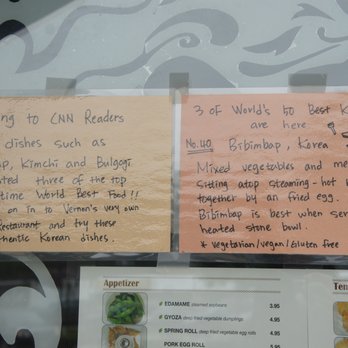 ng to CNN Readers
dishes such as
p, Kimchi and Bulgogi
ted three of the top
time World Best Food !!
on in to Vernon's very own
Restaurant and try these
hentic Korean dishes.
3 of World's 50 Best K
are here
No.40 Bibimbap, Korea
Mixed vegetables and me
Sitting atop steaming-hot
together by an fried egg.
Bibimbap is best when ser
heated stone bowl.
* Vegetarian/Vegan/Gluten Free
Appetizer
EDAMAME steamed soybeans 3.95
GYOZA deep fried vegetable dumplings 4.95
SPRING ROLL deep fried vegetable egg rolls 3.95
PORK EGG ROLL
Ten